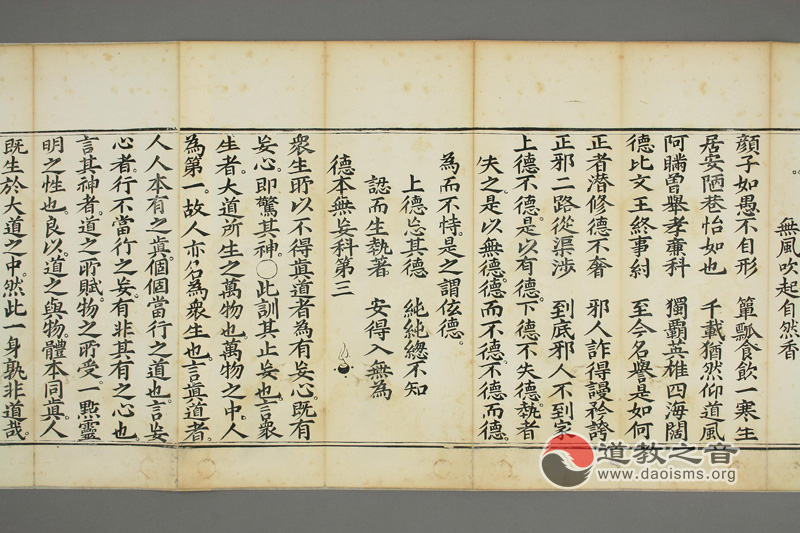 無風吹起自然香
顏子如愚不自形　簞瓢食飲一寒生
居安陋巷怡如也　千載猶然仰道風
阿瞞曾舉孝亷科　獨霸英雄四海闊
德比文王終事紂　至今名譽是如何
正者潜修德不奢　邪人詐得謾衿誇
正邪二路從渠涉　到底邪人不到家
上德不德。是以有德。下德不失德。執者
失之。是以無德。德而不德。不德而德。
為而不恃。是之謂伭德。
上德忘其德　純純緫不知
認而生執著　安得入無為
德本無妄科第三
衆生所以不得眞道者。為有妄心。既有
妄心。即驚其神。○此訓其止妄也。言衆
生者。大道所生之萬物也。萬物之中。人
為第一。故人亦名為衆生也。言眞道者。
人人本有之眞。個個當行之道也。言妄
心者。行不當行之妄。有非其有之心也。
言其神者。道之所賦。物之所受。一㸃靈
明之性也。良以。道之與物。體本同眞。人
既生於大道之中。然此一身。孰非道哉。
道教之音
www.daoisms.org